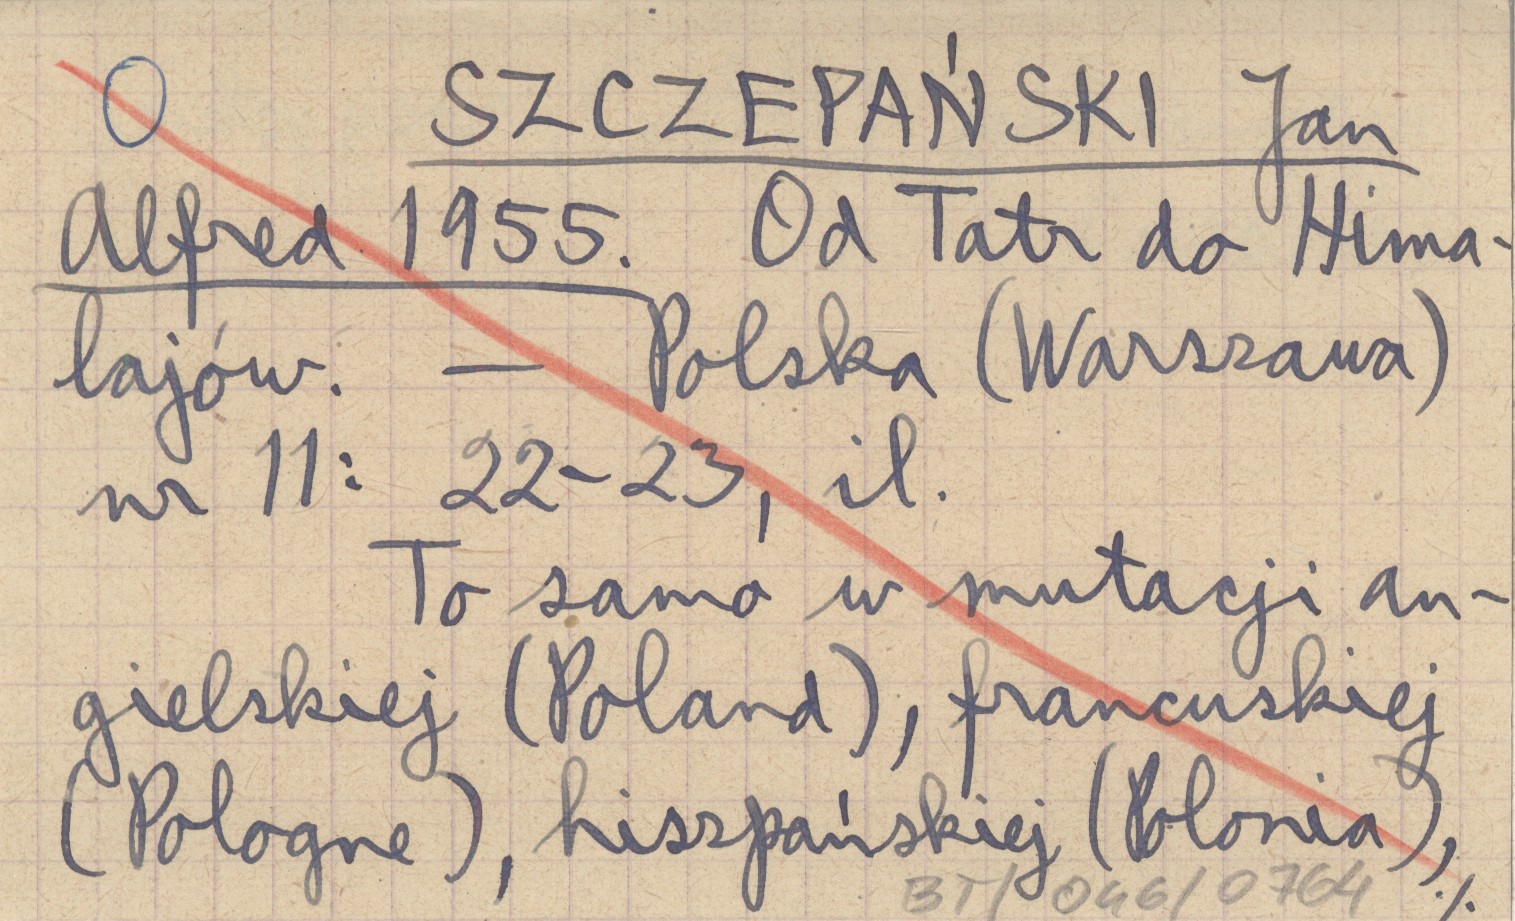 O SZCZEPAŃSKI Jan
Alfred 1955. Od Tatr do Hima-
lajów. — Polska (Warszawa)
nr 11: 22-23, il.
To samo w mutacji an-
gielskiej (Poland), francuskiej
(Pologne), hiszpańskiej (Polonia),
./.
BT/046/0764